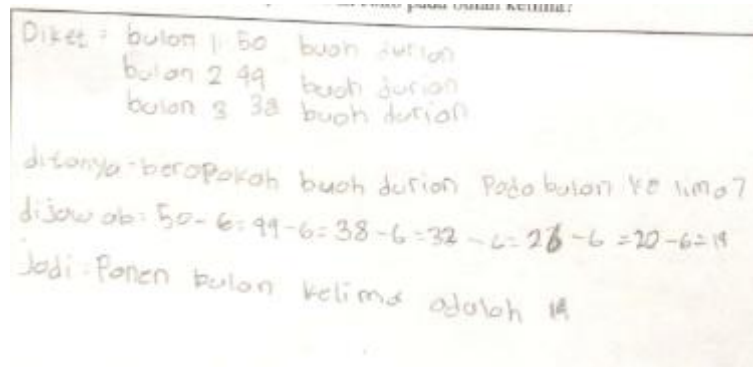 pada bulan kelima?
Diket : bulan 1 50 buah durian
bulan 2 44 buah durian
bulan 3 38 buah durian
ditanya : beropakah buah durian Pada bulan ke lima?
dijawab : 50 - 6 = 44 - 6 = 38 - 6 = 32 - 6 = 26 - 6 = 20 - 6 = 14
Jadi : Panen bulan kelima adalah 14